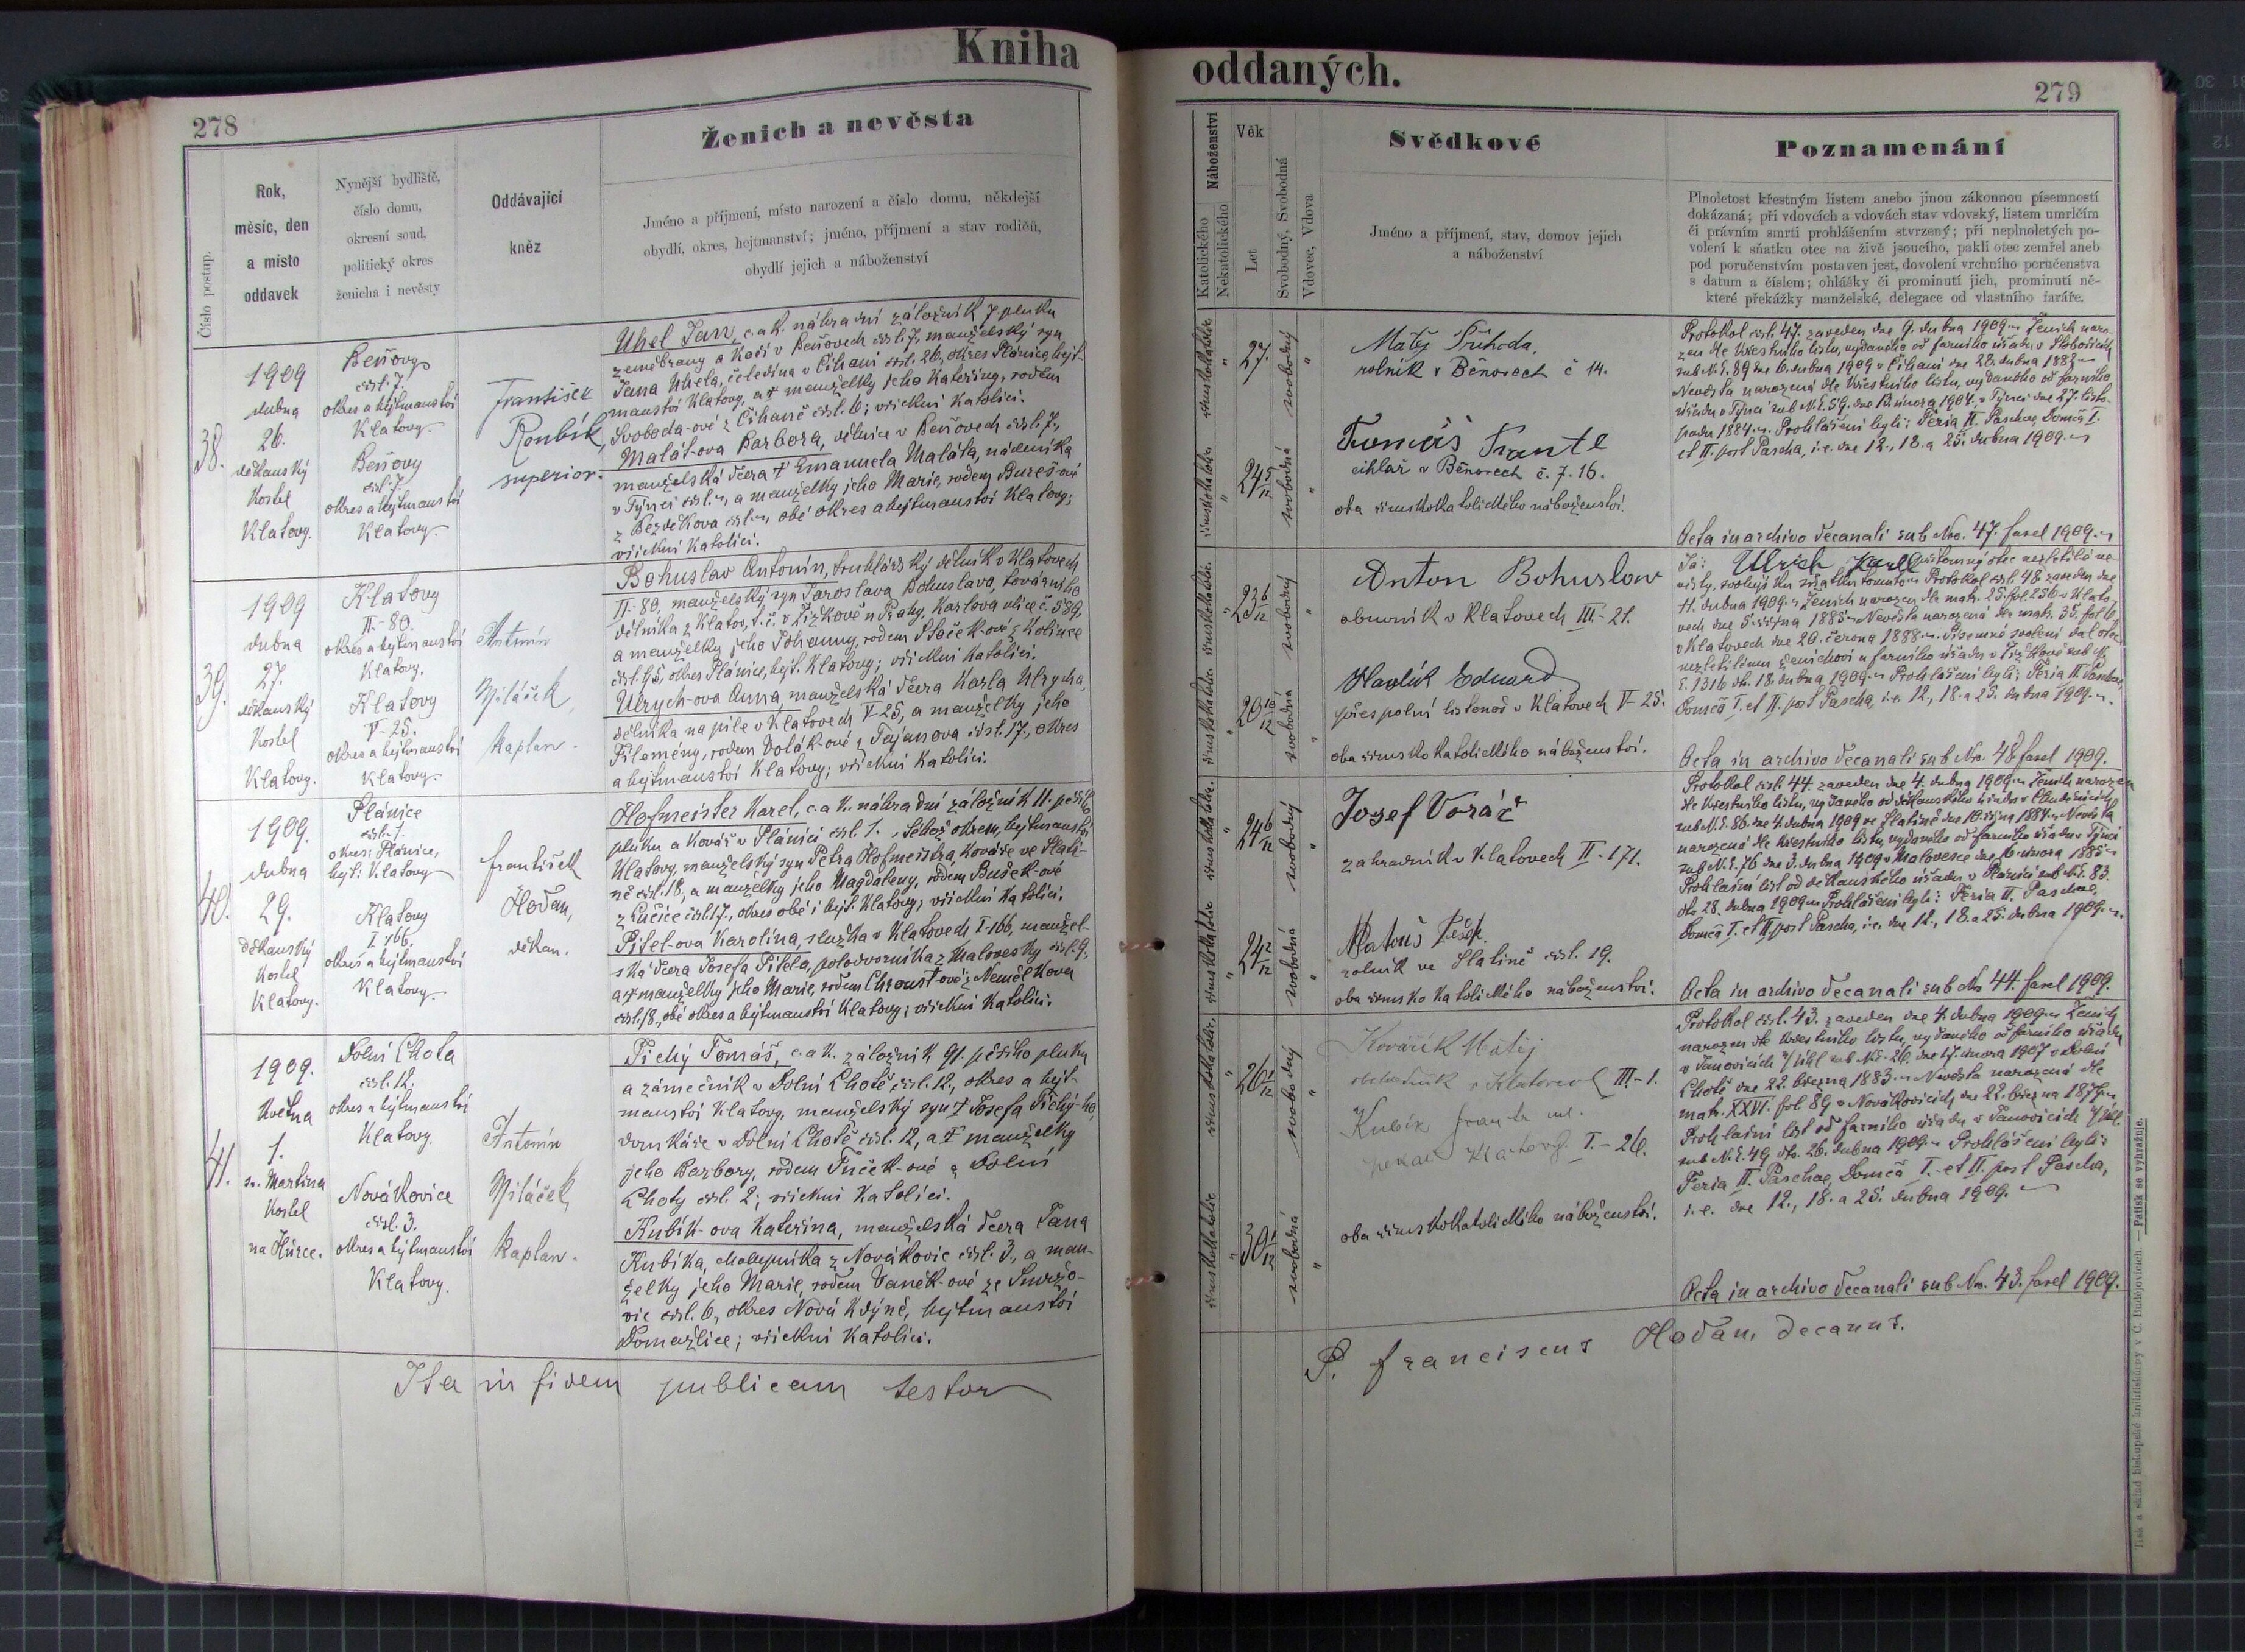 Kniha
278
Ženich a nevěsta
Číslo postup.
Rok,
měsíc, den
a místo
oddavek
Nynější bydliště,
číslo domu,
okresní soud,
politický okres
ženicha i nevěsty
Oddávající
kněz
Jméno a příjmení, místo narození a číslo domu, někdejší
obydlí, okres, hejtmanství; jméno, příjmení a stav rodičů,
obydlí jejich a náboženství
38.
1909
dubna
26.
děkanský
kostel
Klatovy.
Beňovy
čísl. 7.
okres a hejtmanství
Klatovy.
Beňovy
čísl. 7.
okres a hejtmanství
Klatovy.
František
Roubík,
superior.
Uhel Jan, c. a k. náhradní záložník 7 pluku
zeměbrany a kočí v Beňovech čísl. 7, manželský syn
Jana Uhela, čeledína v Číhani čísl. 26, okres Plánice, hejt-
manství Klatovy, a † manželky jeho Kateřiny, rodem
Svoboda-ové z Číhaně čísl. 6; všickni katolíci.
Malát-ova Barbora, dělnice v Beňovech čísl. 7.,
manželská dcera † Emanuela Maláta, nádeníka
v Týnci čísl. , a manželky jeho Marie, rodem Bureš-ové
z Bezděkova čísl. , obé okres a hejtmanství Klatovy;
všickni katolíci.
39.
1909
dubna
27.
děkanský
kostel
Klatovy.
Klatovy
II.-80.
okres a hejtmanství
Klatovy.
Klatovy
V-25.
okres a hejtmanství
Klatovy.
Antonín
Miláček,
kaplan.
Bohuslav Antonín, truhlářský dělník v Klatovech
II.-80, manželský syn Jaroslava Bohuslava, továrního
dělníka z Klatov, t. č. v Žižkově u Prahy, Karlova ulice č. 589,
a manželky jeho Johanny, rodem Ptáček-ové z Kolince
čísl. 45, okres Plánice, hejt. Klatovy; všickni katolíci.
Ulrych-ova Anna, manželská dcera Karla Ulrycha,
dělníka na pile v Klatovech V-25, a manželky jeho
Filomény, rodem Dolák-ové z Tajanova čísl. 17., okres
a hejtmanství Klatovy; všickni katolíci.
40.
1909.
dubna
29.
děkanský
kostel
Klatovy.
Plánice
čísl. 1.
okres: Plánice,
hejt: Klatovy
Klatovy
I-166
okres a hejtmanství
Klatovy
František
Hodan,
děkan.
Hofmeister Karel, c. a k. náhradní záložník 11. pěšího
pluku a kovář v Plánici čísl. 1., téhož okresu, hejtmanství
Klatovy, manželský syn Petra Hofmeistra, kováře ve Slati-
ně čísl. 18, a manželky jeho Magdaleny, rodem Bušek-ové
z Lučice čísl. 17., okres obé i hejt. Klatovy; všickni katolíci.
Pitel-ova Karolína, služka v Klatovech I-166, manžel-
ská dcera Josefa Pitela, polodvorníka z Malovesky čísl. 9,
a † manželky jeho Marie, rodem Chroust-ové z Němčic
čísl. 18., obé okres a hejtmanství Klatovy; všickni katolíci.
41.
1909.
května
1.
sv. Martina
kostel
na Hůrce.
Dolní Lhota
čísl. 12.
okres a hejtmanství
Klatovy.
Novákovice
čísl. 3.
okres a hejtmanství
Klatovy.
Antonín
Miláček,
kaplan.
Tichý Tomáš, c. a k. záložník 91. pěšího pluku
a zámečník v Dolní Lhotě čísl. 12., okres a hejt-
manství Klatovy, manželský syn † Josefa Tichý-ho,
domkáře v Dolní Lhotě čísl. 12, a † manželky
jeho Barbory, rodem Tuček-ové z Dolní
Lhoty čísl. 2; všickni katolíci.
Kubík-ova Kateřina, manželská dcera Jana
Kubíka, chalupníka z Novákovic čísl. 3., a man-
želky jeho Marie, rodem Vaněk-ové ze Smržo-
vic čísl. 6, okres Nová Kdýně, hejtmanství
Domažlice; všickni katolíci.
Ita in fidem publicam testor
oddaných.
279
Náboženství
Katolického
Nekatolického
Věk
Let
Svobodný, Svobodná
Vdovec, Vdova
Svědkové
Jméno a příjmení, stav, domov jejich
a náboženství
Poznamenání
Plnoletost křestným listem anebo jinou zákonnou písemností
dokázaná; při vdovcích a vdovách stav vdovský, listem umrlčím
či právním smrti prohlášením stvrzený; při neplnoletých po-
volení k sňatku otce na živě jsoucího, pakli otec zemřel aneb
pod poručenstvím postaven jest, dovolení vrchního poručenstva
s datum a číslem; ohlášky či prominutí jich, prominutí ně-
které překážky manželské, delegace od vlastního faráře.
římskokatolic.
27.
svobodný
římskokatolic.
24 5/12
svobodná
Matěj Průhoda,
rolník v Běňovech č 14.
Tomáš Frantl
cihlář v Běňovech č. 7. 16.
oba římskokatolického náboženství.
Protokol čísl. 47. zaveden dne 9. dubna 1909. Ženich naro-
zen dle křestního listu, vydaného od farního úřadu v
sub N.E. 89 dne 6. dubna 1909 v Číhani dne 28. dubna 1882
Nevěsta narozená dle křestního listu, vydaného od farního
úřadu v Týnci sub N.E. 59. dne 12. února 1904. v Týnci dne 27. listo-
padu 1884. Prohlášení byli: Feria II. Paschae, Domča I.
et II. post Pascha, i. e. dne 12., 18. a 25. dubna 1909.
Acta in archivo decanali sub Nro. 47. fasc 1909.
římskokatolic.
23 6/12
svobodný
římskokatolic.
20 10/12
svobodná
Anton Bohuslav
obuvník v Klatovech III.-21.
Havlík Eduard
přespolní listonoš v Klatovech V-25.
oba římskokatolického náboženství.
Já: Ulrich Karl přítomný otec nezletilé ne-
věsty, svoluji ku sňatku tomuto. Protokol čísl. 48 zaveden dne
11. dubna 1909. Ženich narozen dle matr. 25. fol. 256 v Klato-
vech dne 5. října 1885. Nevěsta narozená dle matr. 35. fol. 6,
v Klatovech dne 20. června 1888. Písemné svolení dal otec
nezletilému ženichovi u farního úřadu v Žižkově sub N.
E. 1316 dto. 18. dubna 1909. Prohlášení byli: Feria II. Paschae,
Domča I. et II. post Pascha, i. e. 12., 18. a 25. dubna 1909.
Acta in archivo decanali sub Nro. 48 fasc 1909.
římskokatolic.
24 6/12
svobodný
římskokatolic
24 2/12
svobodná
Josef Voráč
zahradník v Klatovech II.-171.
Matouš
rolník ve Slatině čísl. 19.
oba římskokatolického náboženství.
Protokol čísl. 44. zaveden dne 4. dubna 1909. Ženich narozen
dle křestního listu, vydaného od děkanského úřadu v Chudenicích
sub N.E. 86. dne 4. dubna 1909 ve Slatině dne 10. října 1884. Nevěsta
narozená dle křestního listu, vydaného od farního úřadu v Týnci
sub N.E. 76 dne 3. dubna 1909 v Malovesce dne 16. února 1885.
Prohlašní list od děkanského úřadu v Plánici sub N.E. 83.
dto 28. dubna 1909. Prohlášení byli: Feria II. Paschae,
Domča I. et II. post Pascha, i. e. dne 12., 18. a 25. dubna 1909.
Acta in archivo decanali sub Nro 44. fasc 1909.
římskokatolic.
26 1/12
svobodný
římskokatolic
30 1/12
svobodná
Kovářík Matěj
obchodník v Klatovech III-1.
Kubík Frant. ml.
pekař Klatovy. I.-26.
oba římskokatolického náboženství.
Protokol čísl. 43. zaveden dne 4. dubna 1909. Ženich
narozen dle křestního listu, vydaného od farního úřadu
v Janovicích n/Úhl sub N.E. 26. dne 17. února 1907 v Dolní
Lhotě dne 22. března 1883. Nevěsta narozená dle
matr. XXVI. fol. 89 v Novákovicích dne 22. března 1879.
Prohlašní list od farního úřadu v Janovicích n/Úhl.
sub N.E. 49 dto. 26. dubna 1909. Prohlášeni byli:
Feria II. Paschae, Domča I. et II. post Pascha,
i. e. dne 12., 18. a 25. dubna 1909.
Acta in archivo decanali sub Nro. 43. fasc 1909.
P. Franciscus Hodan, decanus.
Tisk a sklad biskupské knihtiskárny v Č. Budějovicích. — Patisk se vyhražuje.